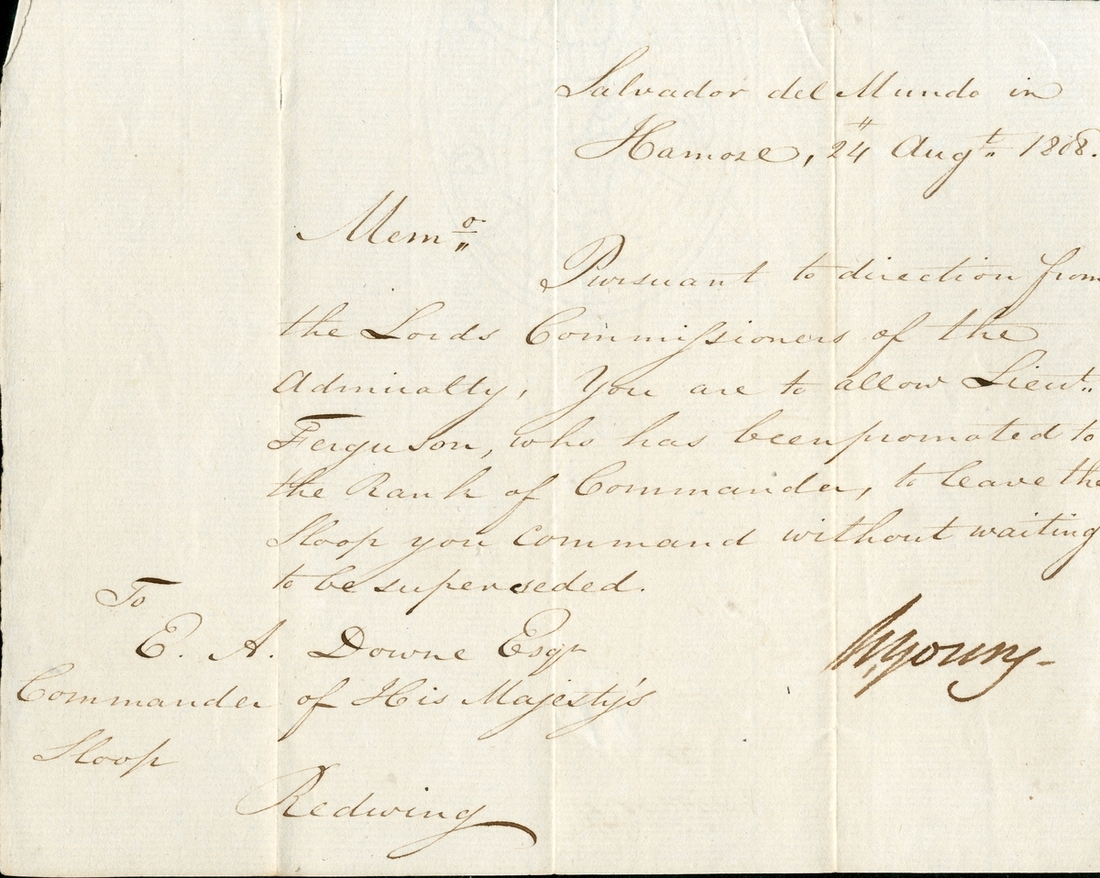 Salvador del Mundo in
Hamoze, 24 Augt. 1808.
Memo
Pursuant to direction from
the Lords Commissioners of the
Admiralty, You are to allow Lieut.
Ferguson, who has been promoted to
the Rank of Commander, to leave the
Sloop you command without waiting
to be superseded.
W Young
To
E. A. Downe Esqr
Commander of His Majesty's
Sloop
Redwing